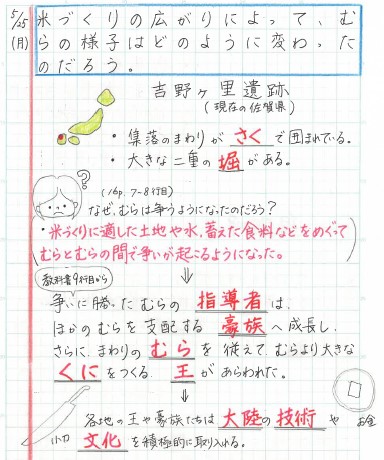 5/25
(月)
米づくりの広がりによって、む
らの様子はどのように変わった
のだろう。
吉野ヶ里遺跡
(現在の佐賀県)
・集落のまわりがさくで囲まれている。
・大きな二重の堀がある。
?
(16p. 7-8行目)
なぜ、むらは争うようになったのだろう?
・米づくりに適した土地や水、蓄えた食料などをめぐって
むらとむらの間で争いが起こるようになった。
教科書9行目から
争いに勝ったむらの指導者は、
ほかのむらを支配する豪族へ成長し、
さらに、まわりのむらを従えて、むらより大きな
くにをつくる王があらわれた。
各地の王や豪族たちは大陸の技術や
お金
小刀
文化を積極的に取り入れる。